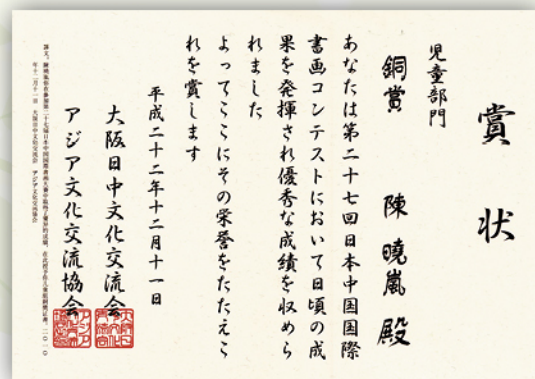 賞状
児童部門
銅賞 陳曉嵐 殿
あなたは第二十七回日本中国国際
書画コンテストにおいて日頃の成
果を発揮され優秀な成績を収めら
れました
よってここにその栄誉をたたえこ
れを賞します
平成二十二年十二月十一日
大阪日中文化交流会
アジア文化交流協会